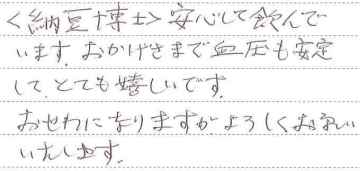 <納豆博士>安心して飲んで
います。おかげさまで血圧も安定
して、とても嬉しいです。
おせわになりますがよろしくお願い
いたします。